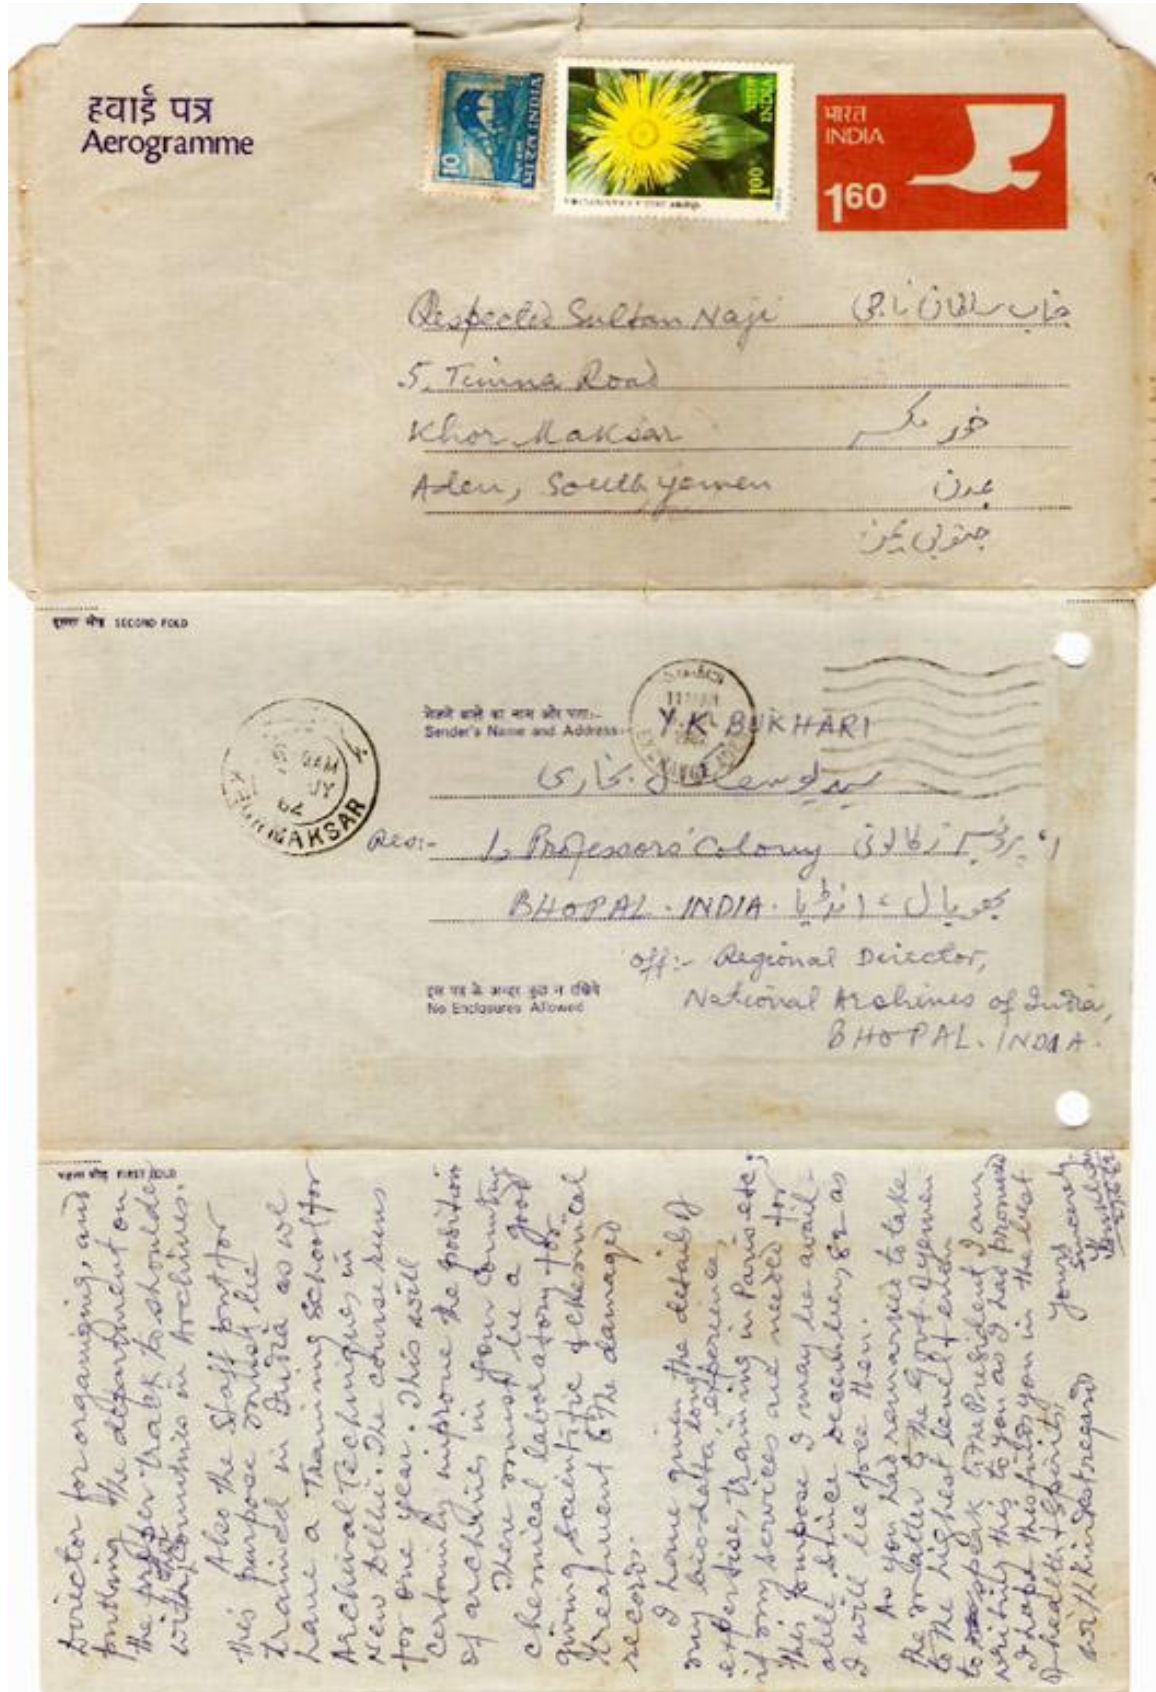 हवाई पत्र
Aerogramme
10
INDIA
1.00
भारत
INDIA
1.60
Respected Sultan Naji جناب سلطان ناجی
5, Timna Road
Khor Maksar خور مکسر
Aden, South yemen عدن
جنوبی یمن
दूसरा मोड़ SECOND FOLD
भेजने वाले का नाम और पता:-
Sender's Name and Address:- Y.K. BUKHARI
سید یوسف کمال بخاری
KHORMAKSAR
Res:- 1, Professors' Colony ۱، پروفیسرز کالونی
BHOPAL. INDIA. بھوپال، انڈیا
Off:- Regional Director,
इस पत्र के अन्दर कुछ न रखिये
No Enclosures Allowed
National Archives of India,
BHOPAL. INDIA.
पहला मोड़ FIRST FOLD
Director for organising, and
putting the department on
the proper track to shoulder
with the Countries in Archives.
Also the Staff for
this purpose must be
trained in India as we
have a Training School for
Archival Techniques, in
New Delhi. The course runs
for one year. This will
certainly improve the position
of archives in your country
There must be a good
chemical laboratory for
giving scientific & chemical
treatment to the damaged
record.
I have given the details of
my bio-data long experience,
expertise, training in Paris etc;
if my services are needed for
this purpose I may be avail-
able since December, 82 as
I will be free then.
As you had remarked to take
the matter to the Govt of yemen
to the highest level & even
to speak to the President, I am
writing this to you as I had promised
I hope this finds you in the best
of health & spirits,
with kindest regard
Yours
Sincerely